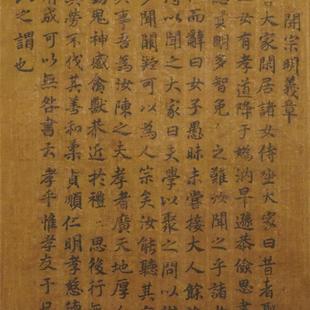 開宗明義章
大家閑居諸女侍坐大家曰昔者
二女有孝道降于媯汭卑遜恭儉思
賢明多智免之難汝聞之乎諸
而辭曰女子愚昧未嘗接大人餘
得以聞之大家曰夫學以聚之問以
多聞闕疑可以為人宗矣汝能聽其
其事吾為汝陳之夫孝者廣天地厚人
動鬼神感禽獸恭近於禮思後行
其勞不伐其善和柔貞順仁明孝慈德
有成可以無咎書云孝乎惟孝友于
此之謂也